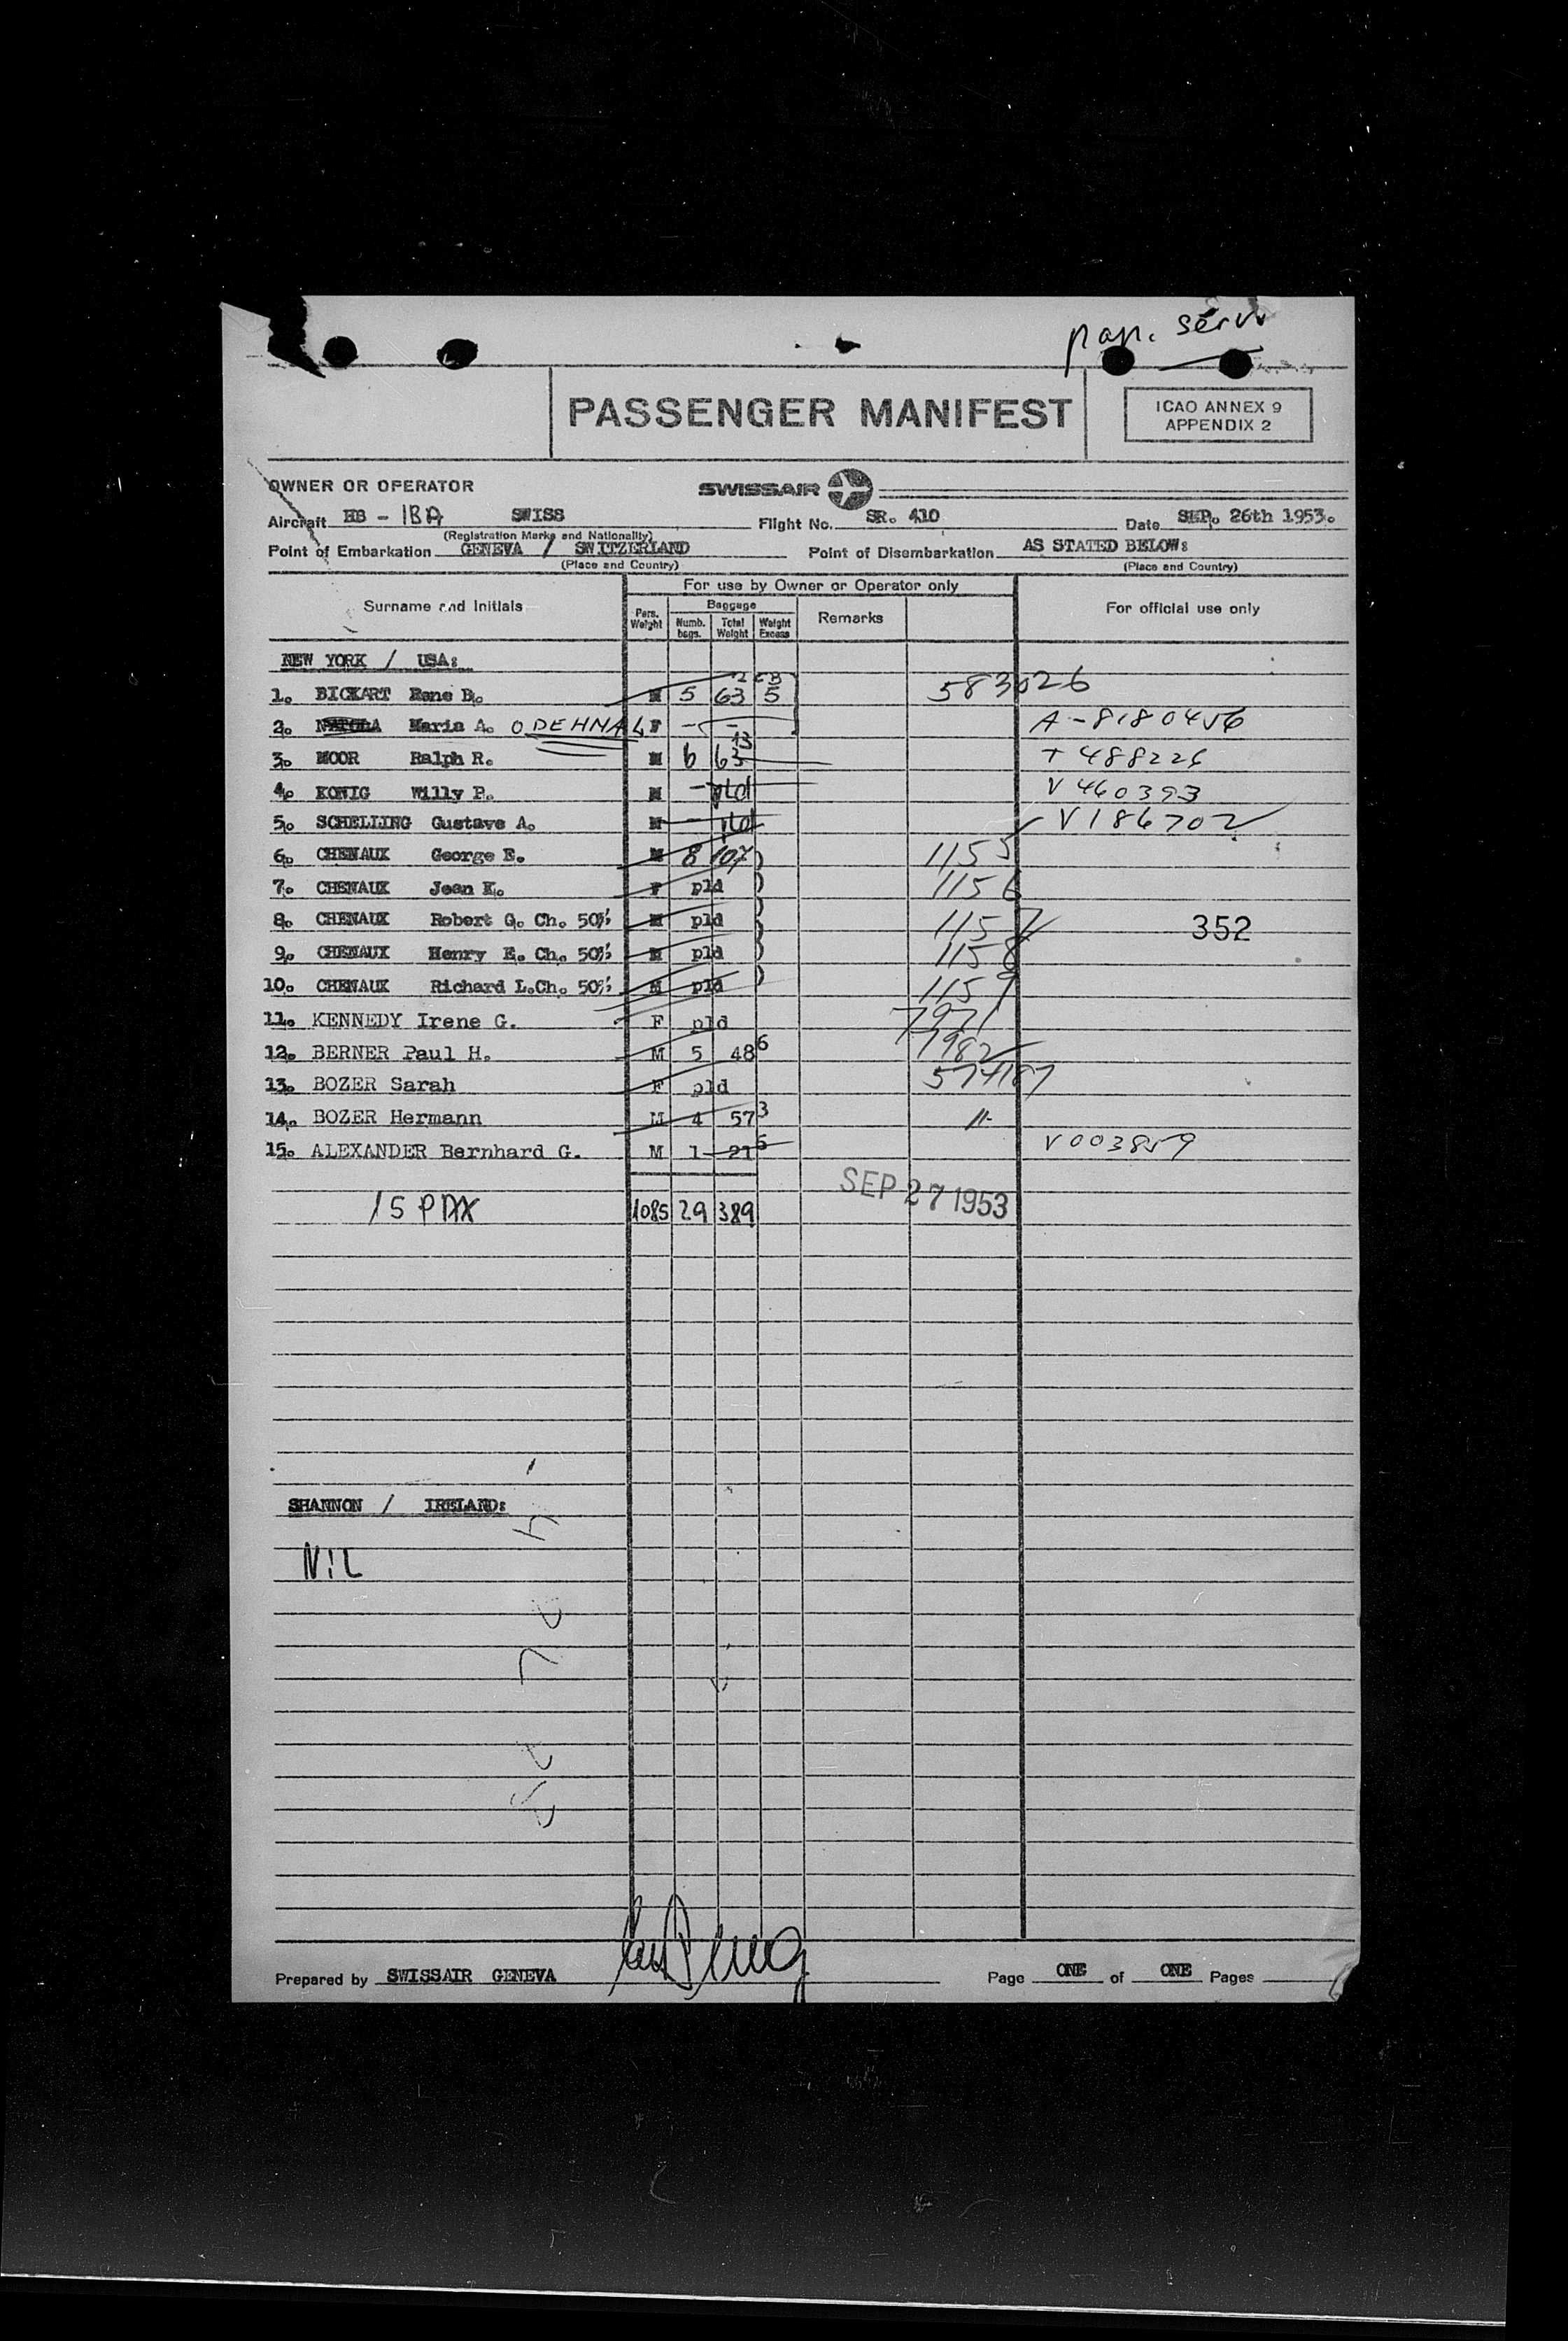 pap. serv
PASSENGER MANIFEST
ICAO ANNEX 9
APPENDIX 2
OWNER OR OPERATOR
SWISSAIR
Aircraft HB - IBA SWISS Flight No. SR. 410 Date SEP. 26th 1953.
(Registration Marks and Nationality)
Point of Embarkation GENEVA / SWITZERLAND Point of Disembarkation AS STATED BELOW:
(Place and Country) (Place and Country)
For use by Owner or Operator only
Surname and Initials Pers. Weight Baggage Numb. bags. Total Weight Weight Excess Remarks For official use only
NEW YORK / USA:
1. BICKART Rene B. M 5 63 5 583026
2. Maria A. ODEHNAL F - - A-8180456
3. MOOR Ralph R. M 6 63 T 488226
4. KONIG Willy P. M - pld V 460393
5. SCHELLING Gustave A. M - pld V186702
6. CHENAUX George E. M 8 107 1155
7. CHENAUX Jean K. F pld 1156
8. CHENAUX Robert G. Ch. 50% M pld 1157 352
9. CHENAUX Henry E. Ch. 50% M pld 1158
10. CHENAUX Richard L.Ch. 50% M pld 1159
11. KENNEDY Irene G. F pld 7971
12. BERNER Paul H. M 5 48 6 7982
13. BOZER Sarah F pld 574187
14. BOZER Hermann M 4 57 3 -11-
15. ALEXANDER Bernhard G. M 1 21 6 V003859
SEP 27 1953
15 PAX 1085 29 389
SHANNON / IRELAND:
NIL
Prepared by SWISSAIR GENEVA Page ONE of ONE Pages